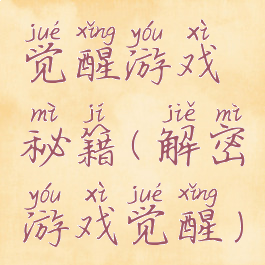 jué xǐng yóu xì
觉醒游戏
mì jí jiě mì
秘籍(解密
yóu xì jué xǐng
游戏觉醒)